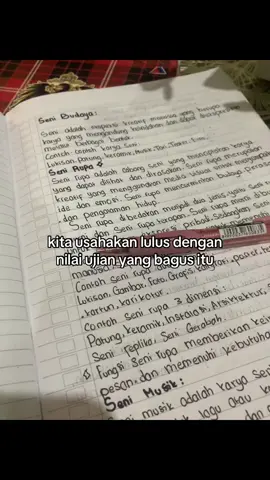 Seni Budaya:
Seni adalah ekspresi kreatif manusia yang
karya yang mengandung keindahan dan dapat
melalui berbagai bentuk.
Contoh-contoh karya Seni:
Lukisan, Patung, keramik, Musik, Tari, Teater
Seni Rupa
Seni rupa adalah cabang seni yang menciptakan karya
yang dapat dilihat dan dirasakan. Seni rupa merupakan
kreatif yang menggunakan media visual
ide dan emosi. Seni rupa mencerminkan budaya, perasaan
dan pengalaman hidup.
Seni rupa dibedakan menjadi dua jenis, yaitu seni
dan Seni rupa terapan. Seni rupa murni
ekspresi pribadi, sedangkan seni
kita usahakan lulus dengan
nilai ujian yang bagus itu
manusia
Contoh seni rupa
Lukisan, Gambar, Foto, Grafis,
kartun, karikatur.
Contoh Seni rupa 3 dimensi:
Patung, keramik, Instalasi, Arsitektur,
Seni replika, Seni Gerabah.
Fungsi Seni rupa memberikan
pesan, dan memenuhi kebutuhan
Seni Musik:
Seni musik adalah karya seni
lagu atau